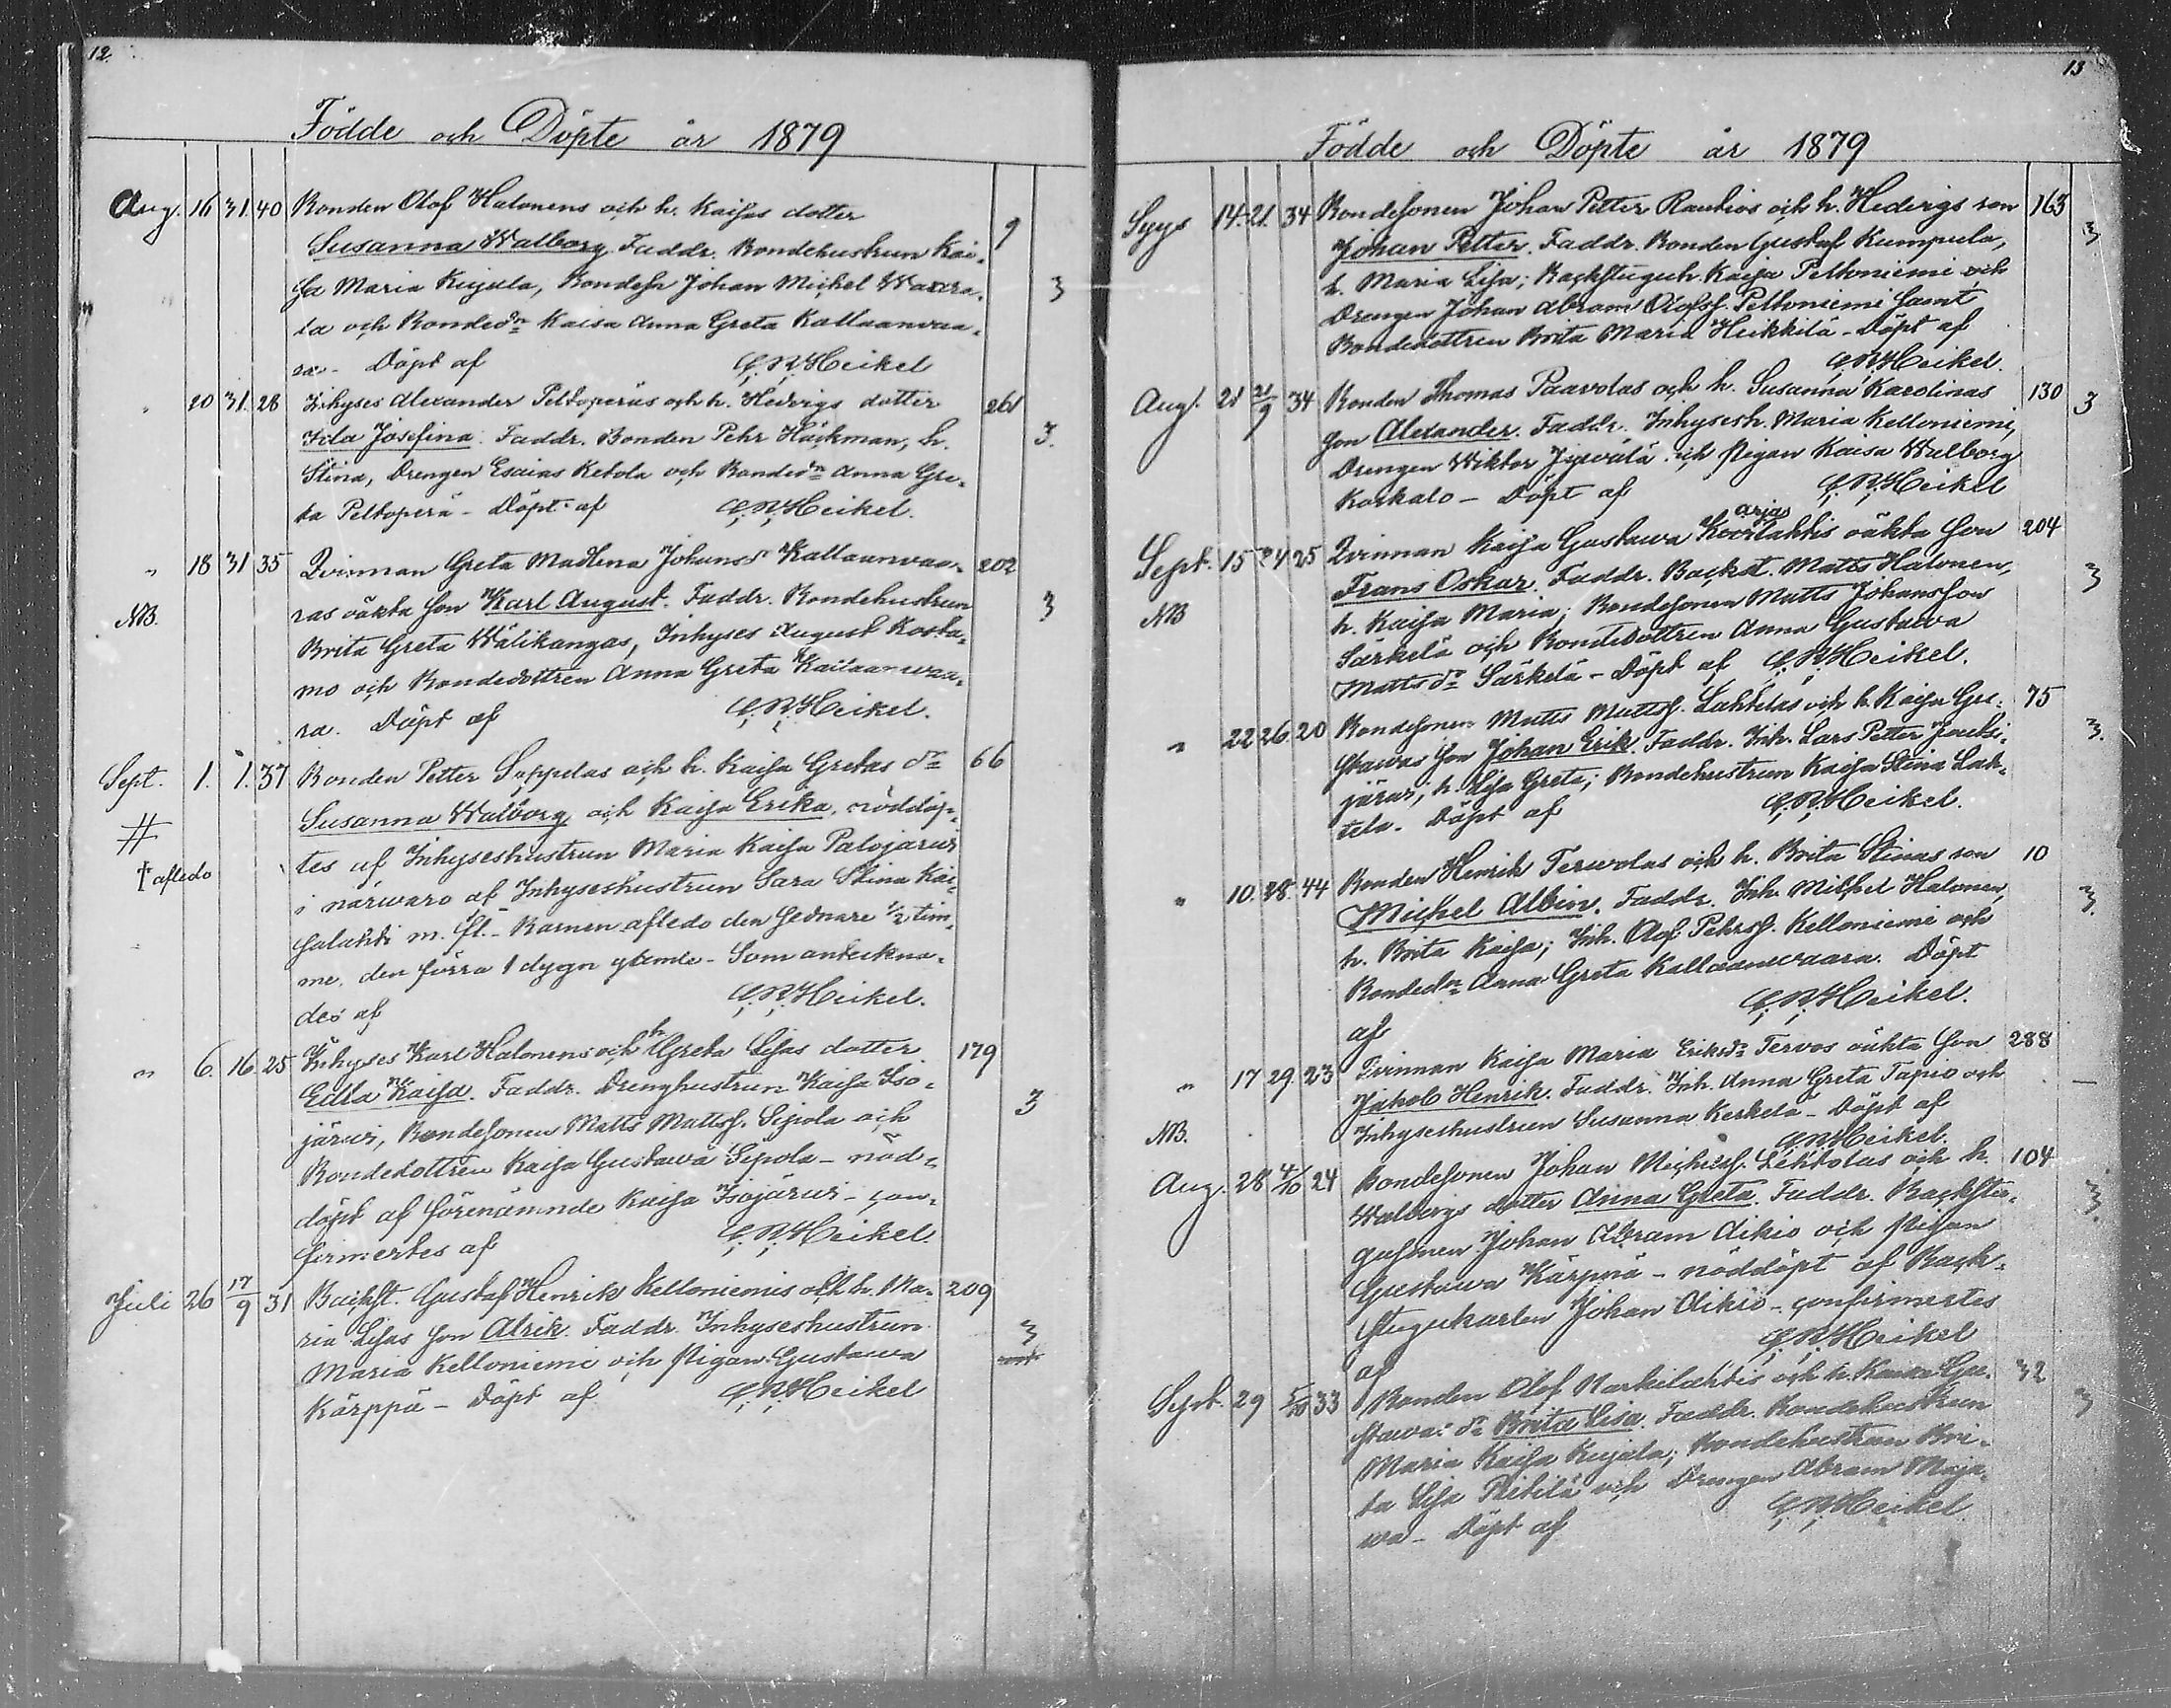 12.
Födde och Döpte år 1879
Aug. 16 31. 40 Bonden Olof Halonens och h. Kaisas dotter 9
Susanna Walborg. Faddr. Bondehustrun Kai-
sa Maria Kujala, Bondes. Johan Michel Waara- 3
la och Bonded:n Kaisa Anna Greta Kallaanvaa-
ra - Döpt af C.R.Heikel
" 20 31. 28 Inhyses Alexander Peltoperäs och h. Hedvigs dotter 261
Ida Josefina. Faddr. Bonden Pehr Häckman, h. 3.
Stina, Drengen Esaias Ketola och Bonded:n Anna Gre-
ta Peltoperä - Döpt af C.R.Heikel.
" 18 31 35 Qvinnan Greta Madlena Johansd:r Kallaanvaa- 202
NB. ras oäkta son Karl August. Faddr. Bondehustrun 3
Brita Greta Wälikangas, Inhyses August Kosta-
mo och Bondedottren Anna Greta Kallaanwaa-
ra. Döpt af C.R.Heikel.
Sept. 1. 1. 37 Bonden Petter Seppelas och h. Kaisa Gretas d:r 66
Susanna Walborg och Kaisa Erika, nöddöp-
† afledo tes af Inhyseshustrun Maria Kaisa Palojärwi
i närwaro af Inhyseshustrun Sara Stina Kai-
salahti m. fl. - Barnen afledo den sednare 1/2 tim-
me, den förra 1 dygn glamle - Som anteckna-
des af C.R.Heikel.
" 6. 16. 25 Inhyses Karl Halonens och h. Greta Lisas dotter 179
Edla Kaisa. Faddr. Drenghustrun Kaisa Iso- 3
järwi, Bondesonen Matts Mattss. Sipola och
Bondedottren Kaisa Gustawa Sipola - nöd-
döpt af förenämnde Kaisa Isojärwi - con-
firmertes af C.R.Heikel.
Juli 26 17/9 31 Backst. Gustaf Henrik Kelloniemis och h. Ma- 209
ria Lisas son Alrik. Faddr. Inhyseshustrun 3
Maria Kelloniemi och Pigan Gustawa
Kärppä - Döpt af C.R.Heikel
13
Födde och Döpte år 1879
14. 21. 34 Bondesonen Johan Petter Rautios och h. Hedvigs son 163
Johan Petter. Faddr. Bonden Gustaf Kumpula, 3
h. Maria Lisa; Backstuguh. Kaisa Peltoniemi och
Drengen Johan Abram Olofss. Peltoniemi samt
Bondedottren Brita Maria Heikkilä - Döpt af
C.R.Heikel.
Aug. 21 21/9 34 Bonden Thomas Paavolas och h. Susanna Karolinas 130 3
son Alexander. Faddr. Inhysesh. Maria Kelloniemi,
Drengen Wiktor och Pigan Kaisa Walborg
Korkalo - Döpt af C.R.Heikel
Sept. 15 24 25 Qvinnan Kaisa Gustawa oäkta son 204
NB Frans Oskar. Faddr. Backst. Matts Halonen, 3
h. Kaisa Maria; Bondesonen Matts Johansson
Särkelä och Bondedottren Anna Gustawa
Matts d:r Särkelä - Döpt af C.R.Heikel.
" 22 26. 20 Bondesonen Matts Mattss. Lahtelas och h. Kaisa Gu- 75
stawas son Johan Erik. Faddr. Inh. Lars Petter Jouhi- 3.
järwi, h. Lisa Greta; Bondehustrun Kaisa Stina Lah-
tela. Döpt af C.R.Heikel.
" 10. 28. 44 Bonden Henrik Terwolas och h. Brita Stinas son 10
Michel Albin. Faddr. Inh. Michel Halonen, 3.
h. Brita Kaisa; Inh. Olof Pehrss. Kelloniemi och
Bonded:n Anna Greta Kallaanwaara. Döpt
af C.R.Heikel.
" 17 29. 23 Qvinnan Kaisa Maria Eriksd:r Tervos oäkta son 288
Jakob Henrik. Faddr. Inh. Anna Greta Tapio och -
NB. Inhyseshustrun Susanna Kerkelä - Döpt af
C.R.Heikel.
Aug. 28 4/10 24 Bondesonen Johan Michelss. Lehtolas och h. 104
Walborgs dotter Anna Greta. Faddr. Backstu- 3.
gusonen Johan Abram Aikio och Pigan
Gustawa Kärppä - nöddöpt af Back-
stugukarlen Johan Aikio - confirmertes
af C.R.Heikel
Sept. 29 5/10 33 Bonden Olof Narkilahtis och h. Kaisa Gu- 32
stawas d:r Brita Lisa. Faddr. Bondehustrun 3
Maria Kaisa Kujala; Bondehustrun Bri-
ta Lisa Pietilä och Drengen Abram Maja-
wa - Döpt af C.R.Heikel